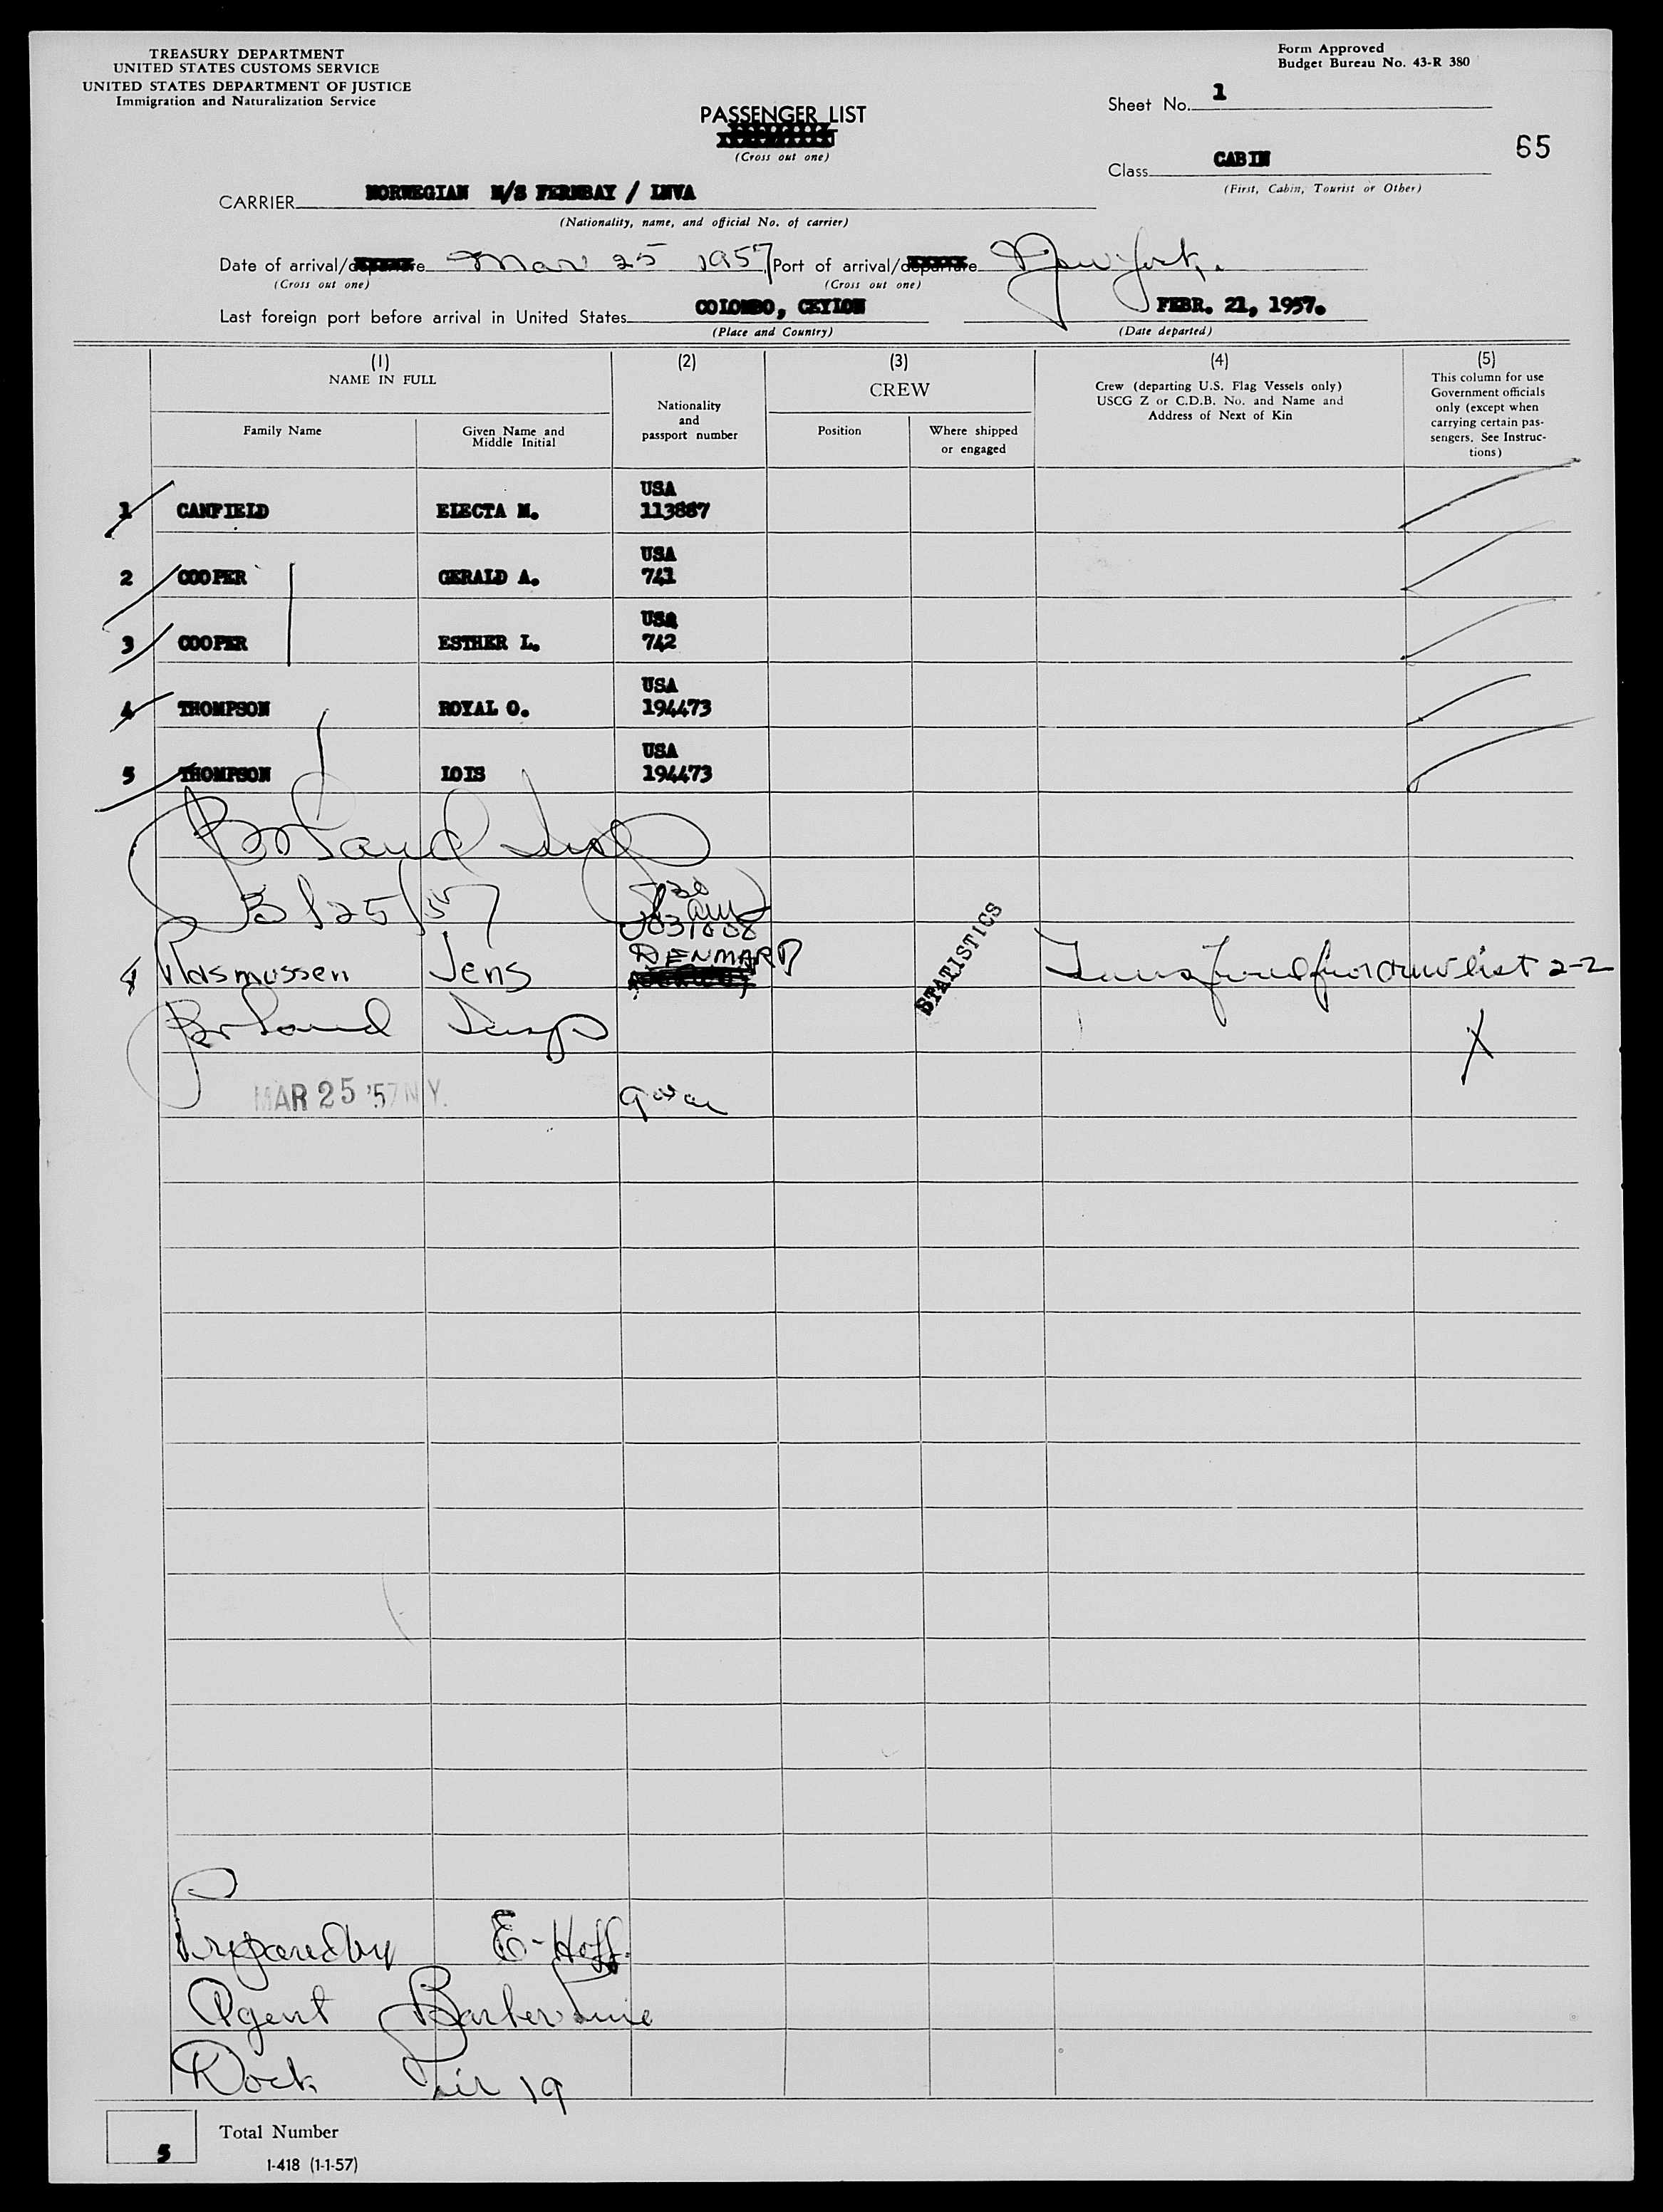 TREASURY DEPARTMENT
UNITED STATES CUSTOMS SERVICE
UNITED STATES DEPARTMENT OF JUSTICE
Immigration and Naturalization Service
Form Approved
Budget Bureau No. 43-R 380
PASSENGER LIST
(Cross out one)
Sheet No. 1
65
Class CABIN
(First, Cabin, Tourist or Other)
CARRIER NORWEGIAN M/S FERNBAY / LNVA
(Nationality, name, and official No. of carrier)
Date of arrival/departure Mar 25 1957 Port of arrival/departure New York.
(Cross out one) (Cross out one)
Last foreign port before arrival in United States COLOMBO, CEYLON FEBR. 21, 1957.
(Place and Country) (Date departed)
(1) (2) (3) (4) (5)
NAME IN FULL
Family Name
Given Name and Middle Initial
Nationality and passport number
CREW
Position
Where shipped or engaged
Crew (departing U.S. Flag Vessels only)
USCG Z or C.D.B. No. and Name and
Address of Next of Kin
This column for use
Government officials
only (except when
carrying certain pas-
sengers. See Instruc-
tions)
1 CANFIELD ELECTA M. USA 113887
2 COOPER GERALD A. USA 741
3 COOPER ESTHER L. USA 742
4 THOMPSON ROYAL O. USA 194473
5 THOMPSON LOIS USA 194473
3/25/57
Rasmussen Jens DENMARK
crew list 2-2
STATISTICS
X
MAR 25 '57 N.Y.
Prepared by E. Hoff.
Agent Barber Line
Dock Pier 19
5 Total Number
I-418 (1-1-57)